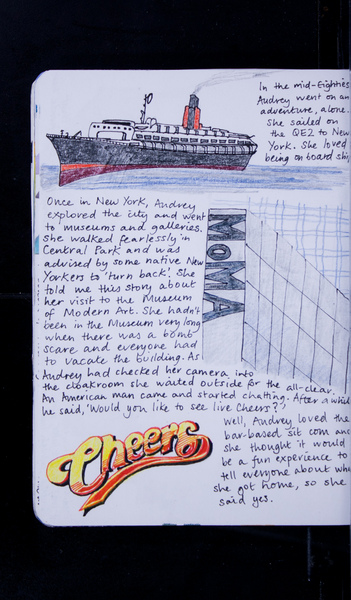 In the mid-Eighties
Audrey went on an
adventure, alone.
She sailed on
the QE2 to New
York. She loved
being on board ship
Once in New York, Audrey
explored the city and went
to museums and galleries.
She walked fearlessly in
Central Park and was
advised by some native New
Yorkers to 'turn back'. She
told me this story about
her visit to the Museum
of Modern Art. She hadn't
been in the Museum very long
when there was a bomb
scare and everyone had
to vacate the building. As
Audrey had checked her camera into
the cloakroom she waited outside for the all-clear.
An American man came and started chatting. After a while
he said, 'Would you like to see live Cheers?'
MOMA
Well, Audrey loved the
bar-based sit com and
she thought it would
be a fun experience to
tell everyone about when
she got home, so she
said yes.
Cheers